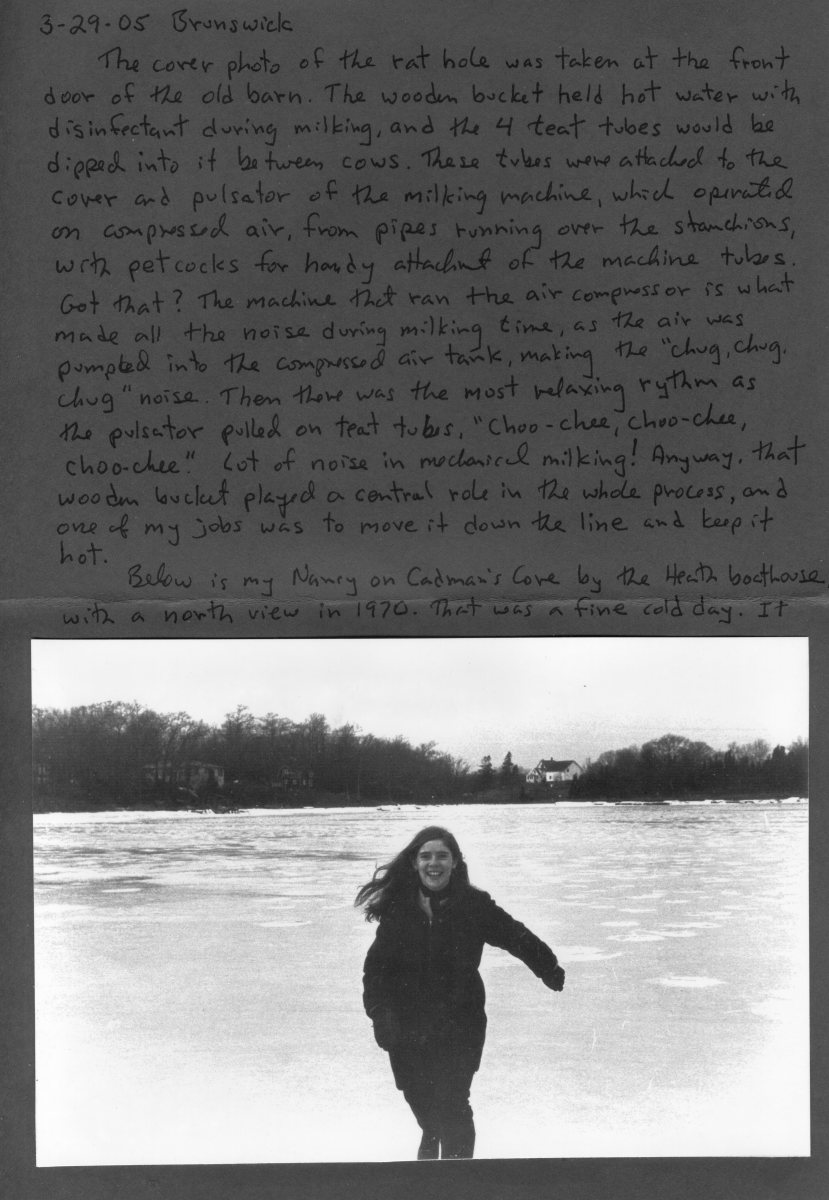 3-29-05 Brunswick
The cover photo of the rat hole was taken at the front
door of the old barn. The wooden bucket held hot water with
disinfectant during milking, and the 4 teat tubes would be
dipped into it between cows. These tubes were attached to the
cover and pulsator of the milking machine, which operated
on compressed air, from pipes running over the stanchions,
with petcocks for handy attachmt of the machine tubes.
Got that? The machine that ran the air compressor is what
made all the noise during milking time, as the air was
pumpted into the compressed air tank, making the "chug, chug,
chug" noise. Then there was the most relaxing rythm as
the pulsator pulled on teat tubes, "Choo-chee, choo-chee,
choo-chee". Lot of noise in mechanical milking! Anyway, that
wooden bucket played a central role in the whole process, and
one of my jobs was to move it down the line and keep it
hot.
Below is my Nancy on Cadman's Cove by the Heath boathouse
with a north view in 1970. That was a fine cold day. It